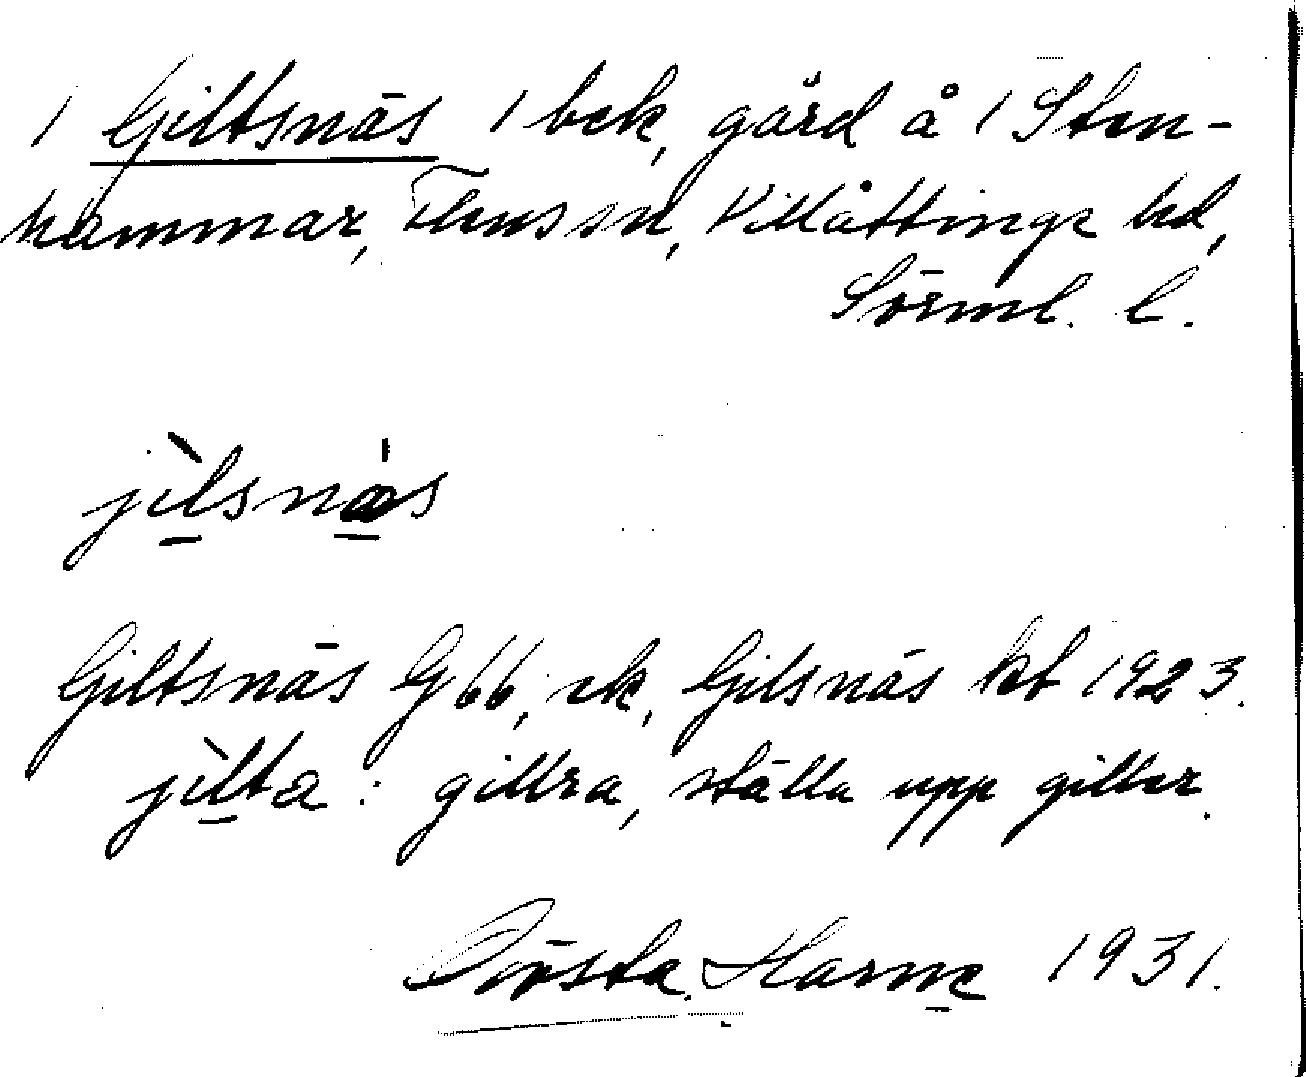 1 Giltsnäs 1 bek, gård å 1 Sten-
hammar, Flens sn, Villåttinge hd,
Sörml. l.
jìlsnä́s
Giltsnäs G 66, ek, Gilsnäs kt 1923.
jìlta : gillra, ställa upp giller.
Gösta Harne 1931.